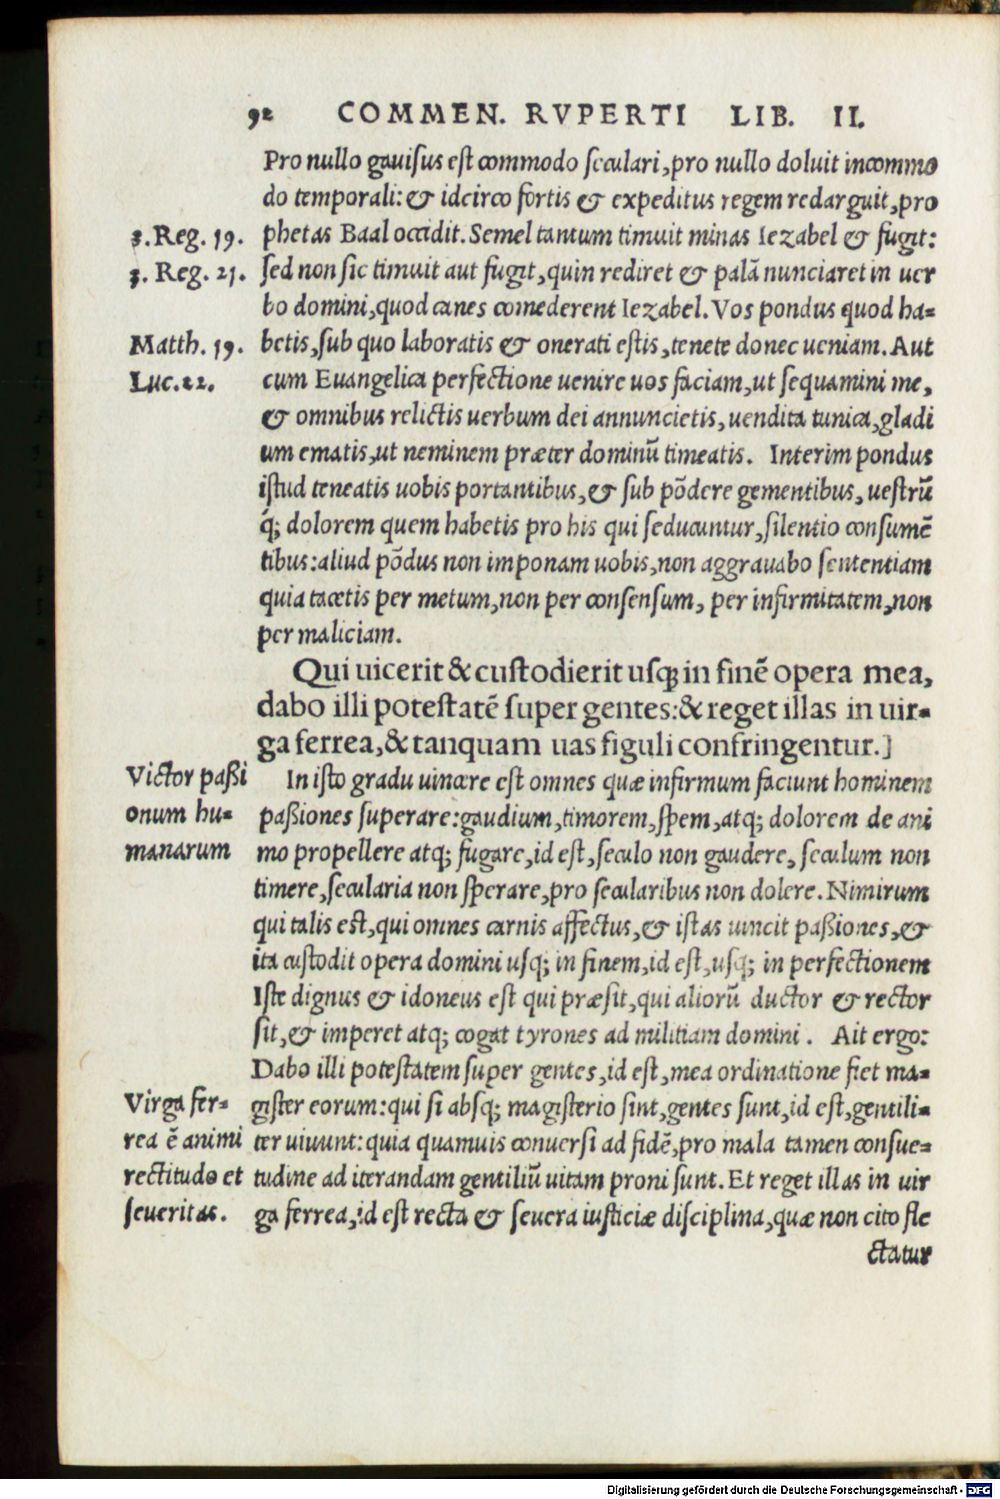 92 COMMEN. RVPERTI LIB. II.
Pro nullo gauisus est commodo seculari, pro nullo doluit incommo
do temporali: & idcirco fortis & expeditus regem redarguit, pro
3. Reg. 19. phetas Baal occidit. Semel tantum timuit minas Iezabel & fugit:
3. Reg. 21. sed non sic timuit aut fugit, quin rediret & palã nunciaret in uer
bo domini, quod canes comederent Iezabel. Vos pondus quod ha-
Matth. 19. betis, sub quo laboratis & onerati estis, tenete donec ueniam. Aut
Luc. 22. cum Euangelica perfectione uenire uos faciam, ut sequamini me,
& omnibus relictis uerbum dei annuncietis, uendita tunica, gladi
um ematis, ut neminem præter dominũ timeatis. Interim pondus
istud teneatis uobis portantibus, & sub põdere gementibus, uestrũ
q́; dolorem quem habetis pro his qui seducuntur, silentio consumẽ
tibus: aliud põdus non imponam uobis, non aggrauabo sententiam
quia tacetis per metum, non per consensum, per infirmitatem, non
per maliciam.
Qui uicerit & custodierit usq; in finẽ opera mea,
dabo illi potestatẽ super gentes: & reget illas in uir-
ga ferrea, & tanquam uas figuli confringentur.]
Victor paßi In isto gradu uincere est omnes quæ infirmum faciunt hominem
onum hu- paßiones superare: gaudium, timorem, spem, atq; dolorem de ani
manarum mo propellere atq; fugare, id est, seculo non gaudere, seculum non
timere, secularia non sperare, pro secularibus non dolere. Nimirum
qui talis est, qui omnes carnis affectus, & istas uincit paßiones, &
ita custodit opera domini usq; in finem, id est, usq; in perfectionem
Iste dignus & idoneus est qui præsit, qui aliorũ ductor & rector
sit, & imperet atq; cogat tyrones ad militiam domini. Ait ergo:
Dabo illi potestatem super gentes, id est, mea ordinatione fiet ma-
Virga fer- gister eorum: qui si absq; magisterio sint, gentes sunt, id est, gentili-
rea ẽ animi ter uiuunt: quia quamuis conuersi ad fidẽ, pro mala tamen consue-
rectitudo et tudine ad iterandam gentiliũ uitam proni sunt. Et reget illas in uir
seueritas. ga ferrea, id est recta & seuera iusticiæ disciplina, quæ non cito fle
ctatur
Digitalisierung gefördert durch die Deutsche Forschungsgemeinschaft - DFG